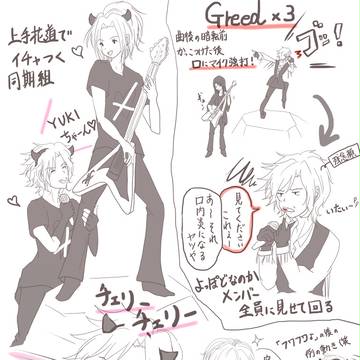 上手花道で
イチャつく
同期組
YUKI
ちゃーん♡
Greed×3
曲後の暗転前
かっこつけた後
口にマイク強打!
ゴッ!
3
いたい…
見てください
これぇー
あーそれ
口内炎になる
ヤツや
よっぽどなのか
メンバー
全員に見せて回る
チェリー
チェリー
の後の